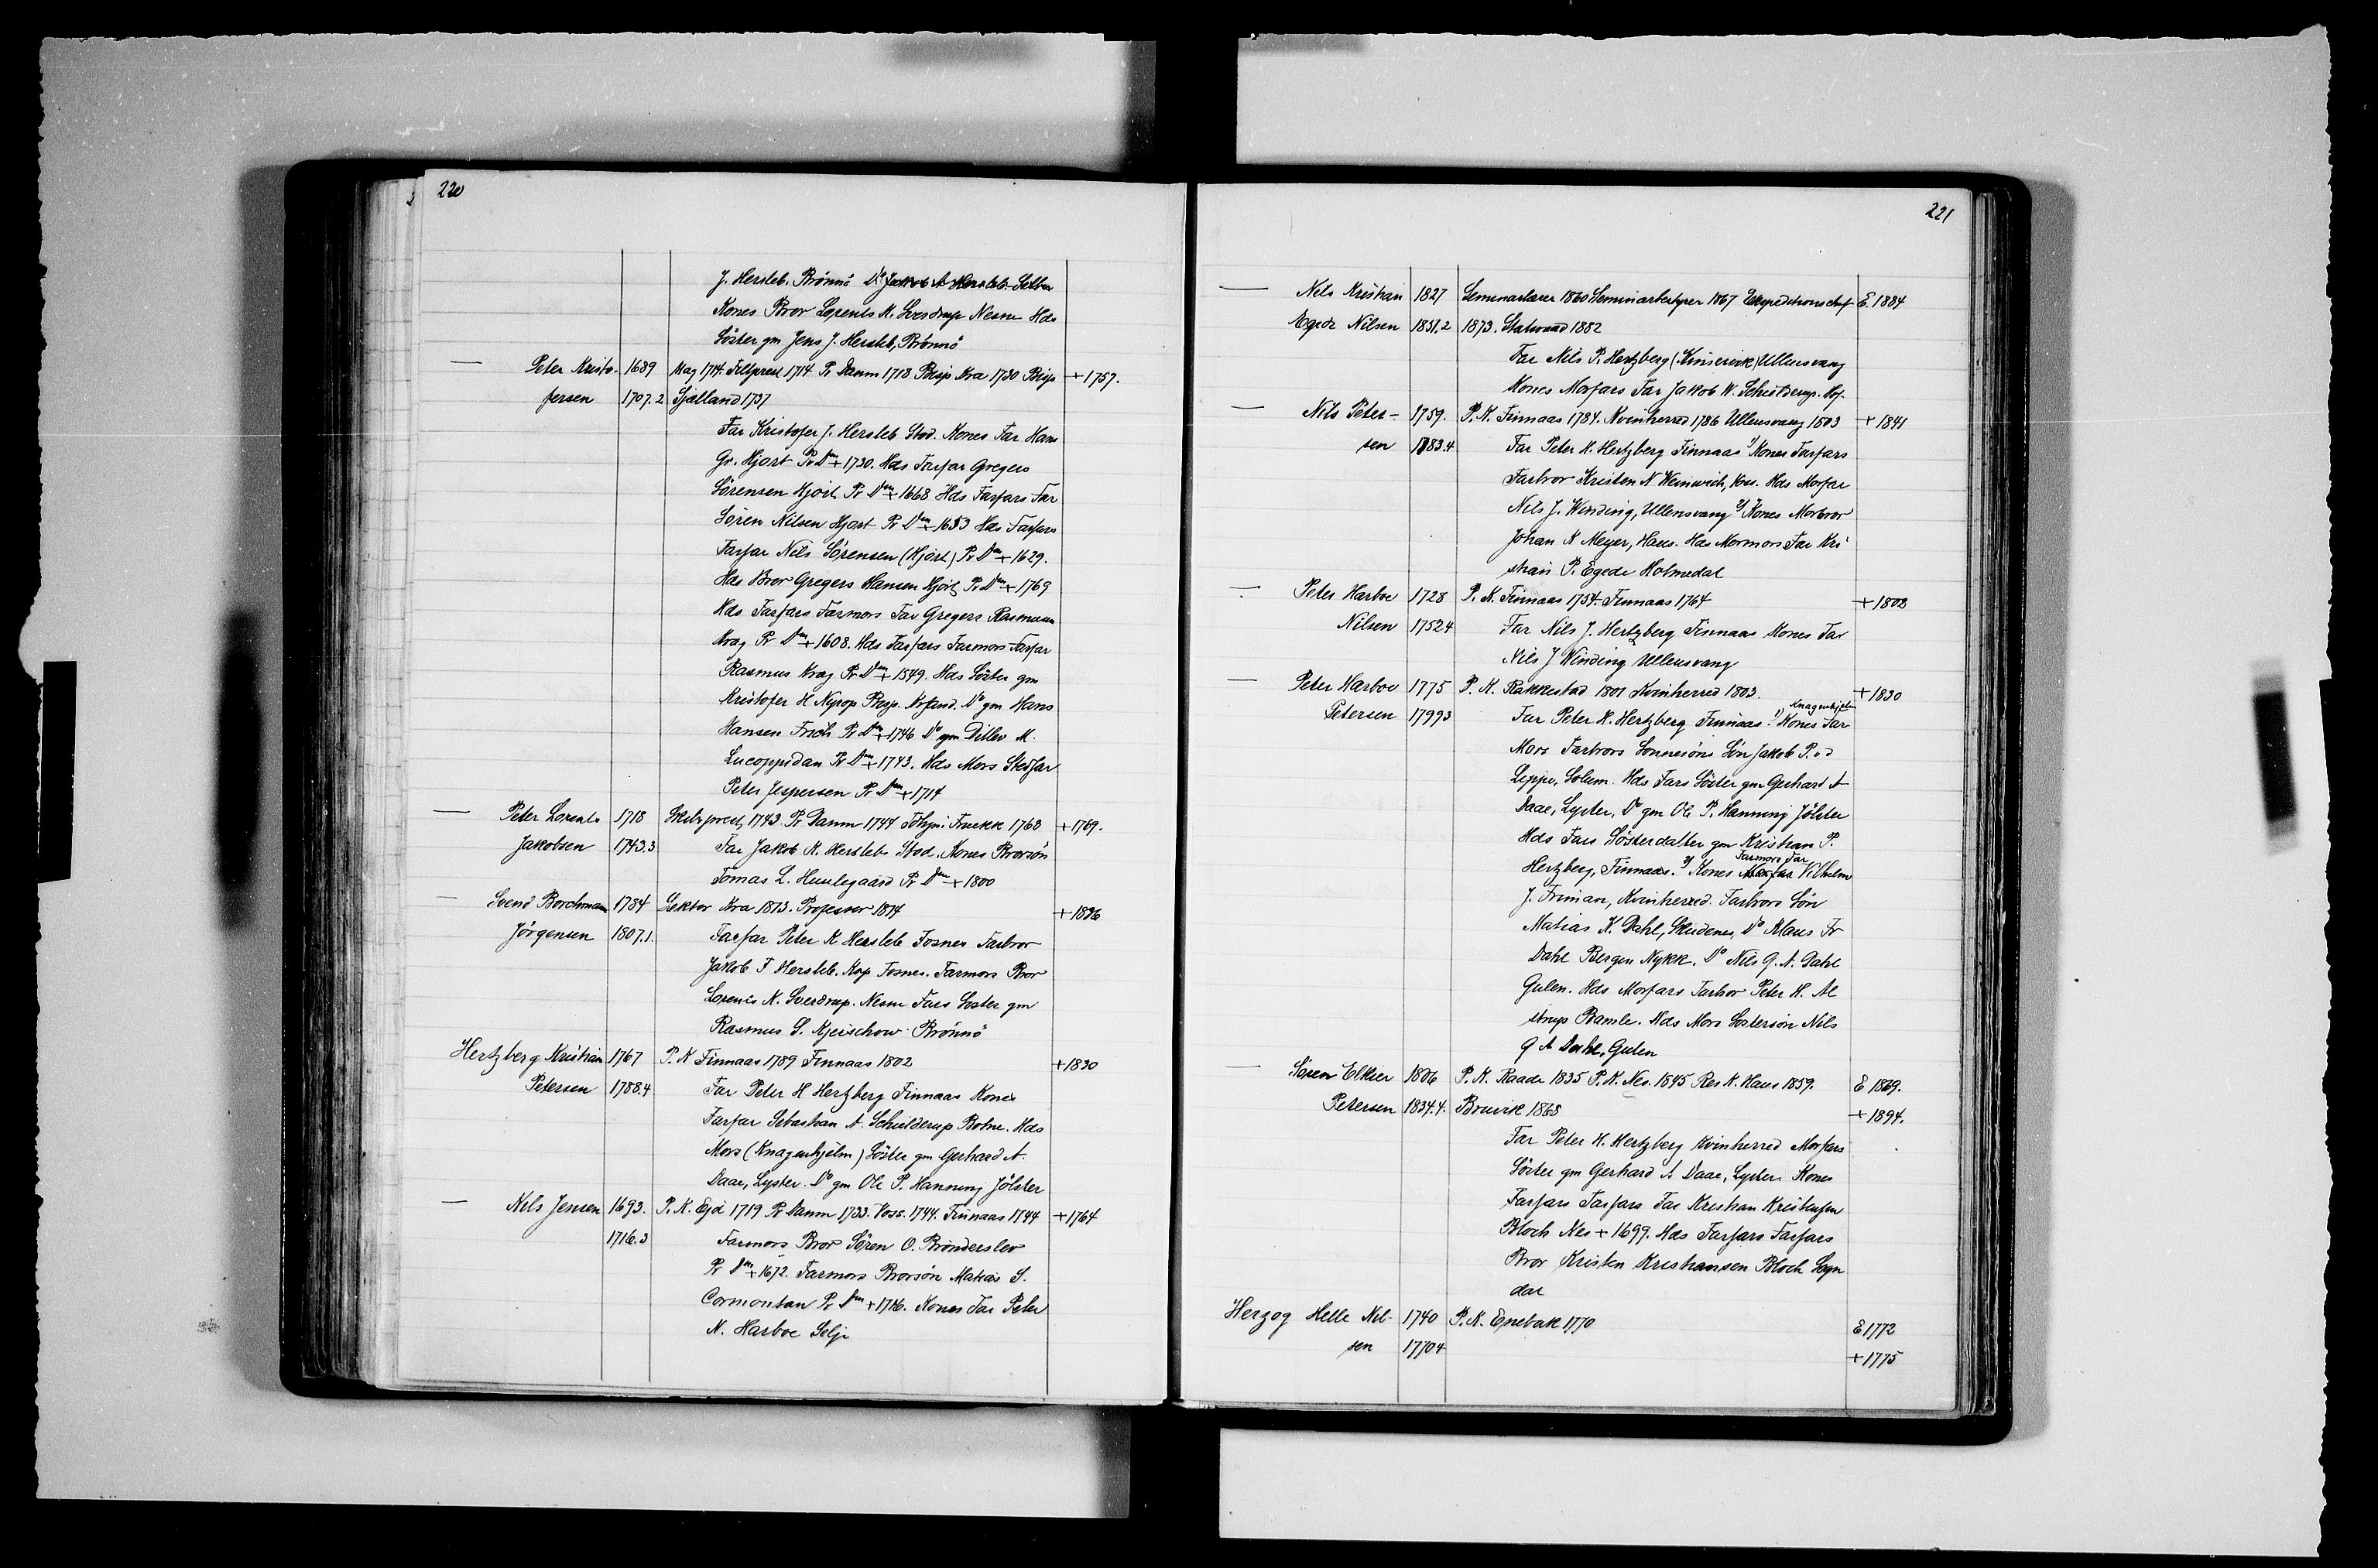 220
J. Hersleb. Brønnö Do Jakob A Hersleb Selbu
Kones Bror Lorents M. Sverdrup Nesne Hds
Söster gm Jens J. Hersleb, Brönnö
— Peter Kristo- 1689 Mag 1714. Feltprest 1714. Pr Danm 1718 Bisp Kra 1730 Bisp +1757.
fersen 1707.2 Sjælland 1737
Far Kristofer J. Hersleb Stod. Kones Far Hans
Gr. Hjort Pr Dm + 1730. Hds Farfar Gregers
Sörensen Hjort Pr Dm + 1668 Hds Farfars Far
Sören Nilsen Hjort Pr Dm + 1653 Hds Farfars
Farfar Nils Sörensen (Hjort) Pr Dm + 1629.
Hds Bror Gregers Hansen Hjort Pr Dm + 1769
Hds Farfars Farmors Far Gregers Rasmussen
Krag Pr Dm + 1608. Hds Farfars Farmors Farfar
Rasmus Krag Pr Dm + 1549. Hds Söster gm
Kristofer H Nyrop Bisp. Krsand. Do gm Hans
Hansen Frich Pr Dm + 1746 Do gm Ditlev M.
Lucoppidan Pr Dm + 1743. Hds Mors Stedfar
Peter Jespersen Pr Dm + 1714
— Peter Lorents 1718 Skibsprest 1743. Pr Danm 1744 1768 +1769.
Jakobsen 1743.3 Far Jakob K. Hersleb Stod. Kones Brorsön
Tomas L. Huulegaard Pr Dm + 1800
— Svend Borchmann 1784 Lektor Kra 1813. Professor 1814 +1836
Jörgensen 1807.1. Farfar Peter K Hersleb Fosnes Farbror
Jakob F Hersleb. Kap Fosnes. Farmors Bror
Lorents K. Sverdrup. Nesne Fars Söster gm
Rasmus S. Kjerschow Brönnö
Hertzberg Kristian 1767 P. K Finnaas 1789 Finnaas 1802 +1830
Petersen 1788.4 Far Peter H Hertzberg Finnaas Kones
Farfar Sebastian A. Schielderup Bolne. Hds
Mors (Knagenhjelm) Söster gm Gerhard A.
Daae, Lyster. Do gm Ole P. Hanning Jölster
— Nils Jensen 1693. P. K. Ejd 1719 Pr Danm 1733. Voss. 1744. Finnaas 1744 +1764
1716.3 Farmors Bror Sören O. Brönderslev
Pr Dm + 1672. Farmors Brorsön Matias S.
Cormontan Pr Dm + 1716. Kones Far Peter
N. Harboe Selje
221
— Nils Kristian 1827 Seminarlærer 1860 Seminarbestyrer 1867 Ekspeditionschef E. 1884
Egede Nilsen 1851.2 1873. Statsraad 1882
Far Nils P. Hertzberg (Kinservik) Ullensvang
Kones Morfars Far Jakob W. Schielderup. Hof.
— Nils Peter- 1759. P. K. Finnaas 1784. Kvinherred 1786 Ullensvang 1803 +1841
sen 1783.4 Far Peter H. Hertzberg Finnaas 1) Kones Farfars
Farbror Kristen N Weinwich, Voss. Hds Morfar
Nils J. Winding, Ullensvang 2) Kones Morbror
Johan K Meyer, Haus. Hds Mormors Far Kri
stian P. Egede Holmedal
— Peter Harboe 1728 P. K. Finnaas 1754. Finnaas 1764 +1802
Nilsen 1752.4 Far Nils J. Hertzberg Finnaas Kones Far
Nils J Winding Ullensvang
— Peter Harboe 1775 P. K. Rakkestad 1801 Kvinherred 1803. +1830
Knagenhjelm
Petersen 1799.3 Far Peter H. Hertzberg Finnaas. 1) Kones Far
Mors Farbrors Sönnesöns Sön Jakob P. v d
Lippe, Solum. Hds Fars Söster gm Gerhard A
Daae, Lyster, Do gm Ole P. Hanning Jölster
Hds Fars Sösterdatter gm Kristian P.
Farmors Far
Hertzberg, Finnaas. 2) Kones Morfar Vilhelm
J. Friman, Kvinherred. Farbrors Sön
Matias K. Dahl, Skudenes, Do Klaus Fr
Dahl Bergen Nykk. Do Nils G. A. Dahl
Gulen. Hds Morfars Farbror Peter H. Al
strup Bamle. Hds Mors Söstersön Nils
G A Dahl, Gulen
— Sören Elkier 1806 P. K. Raade 1835 P. K. Nes. 1845 Res K. Haus 1859. E 1869.
Petersen 1834.4. Bruvik 1868 +1894.
Far Peter H. Hertzberg Kvinherred Morfars
Söster gm Gerhard A Daae, Lyster. Kones
Farfars Farfars Far Kristian Kristensen
Bloch Nes + 1699. Hds Farfars Farfars
Bror Kristen Kristiansen Bloch Sogn
dal
Herzog Helle Nil- 1740 P. K. Enebak 1770 E 1772
sen 1770.4 +1775